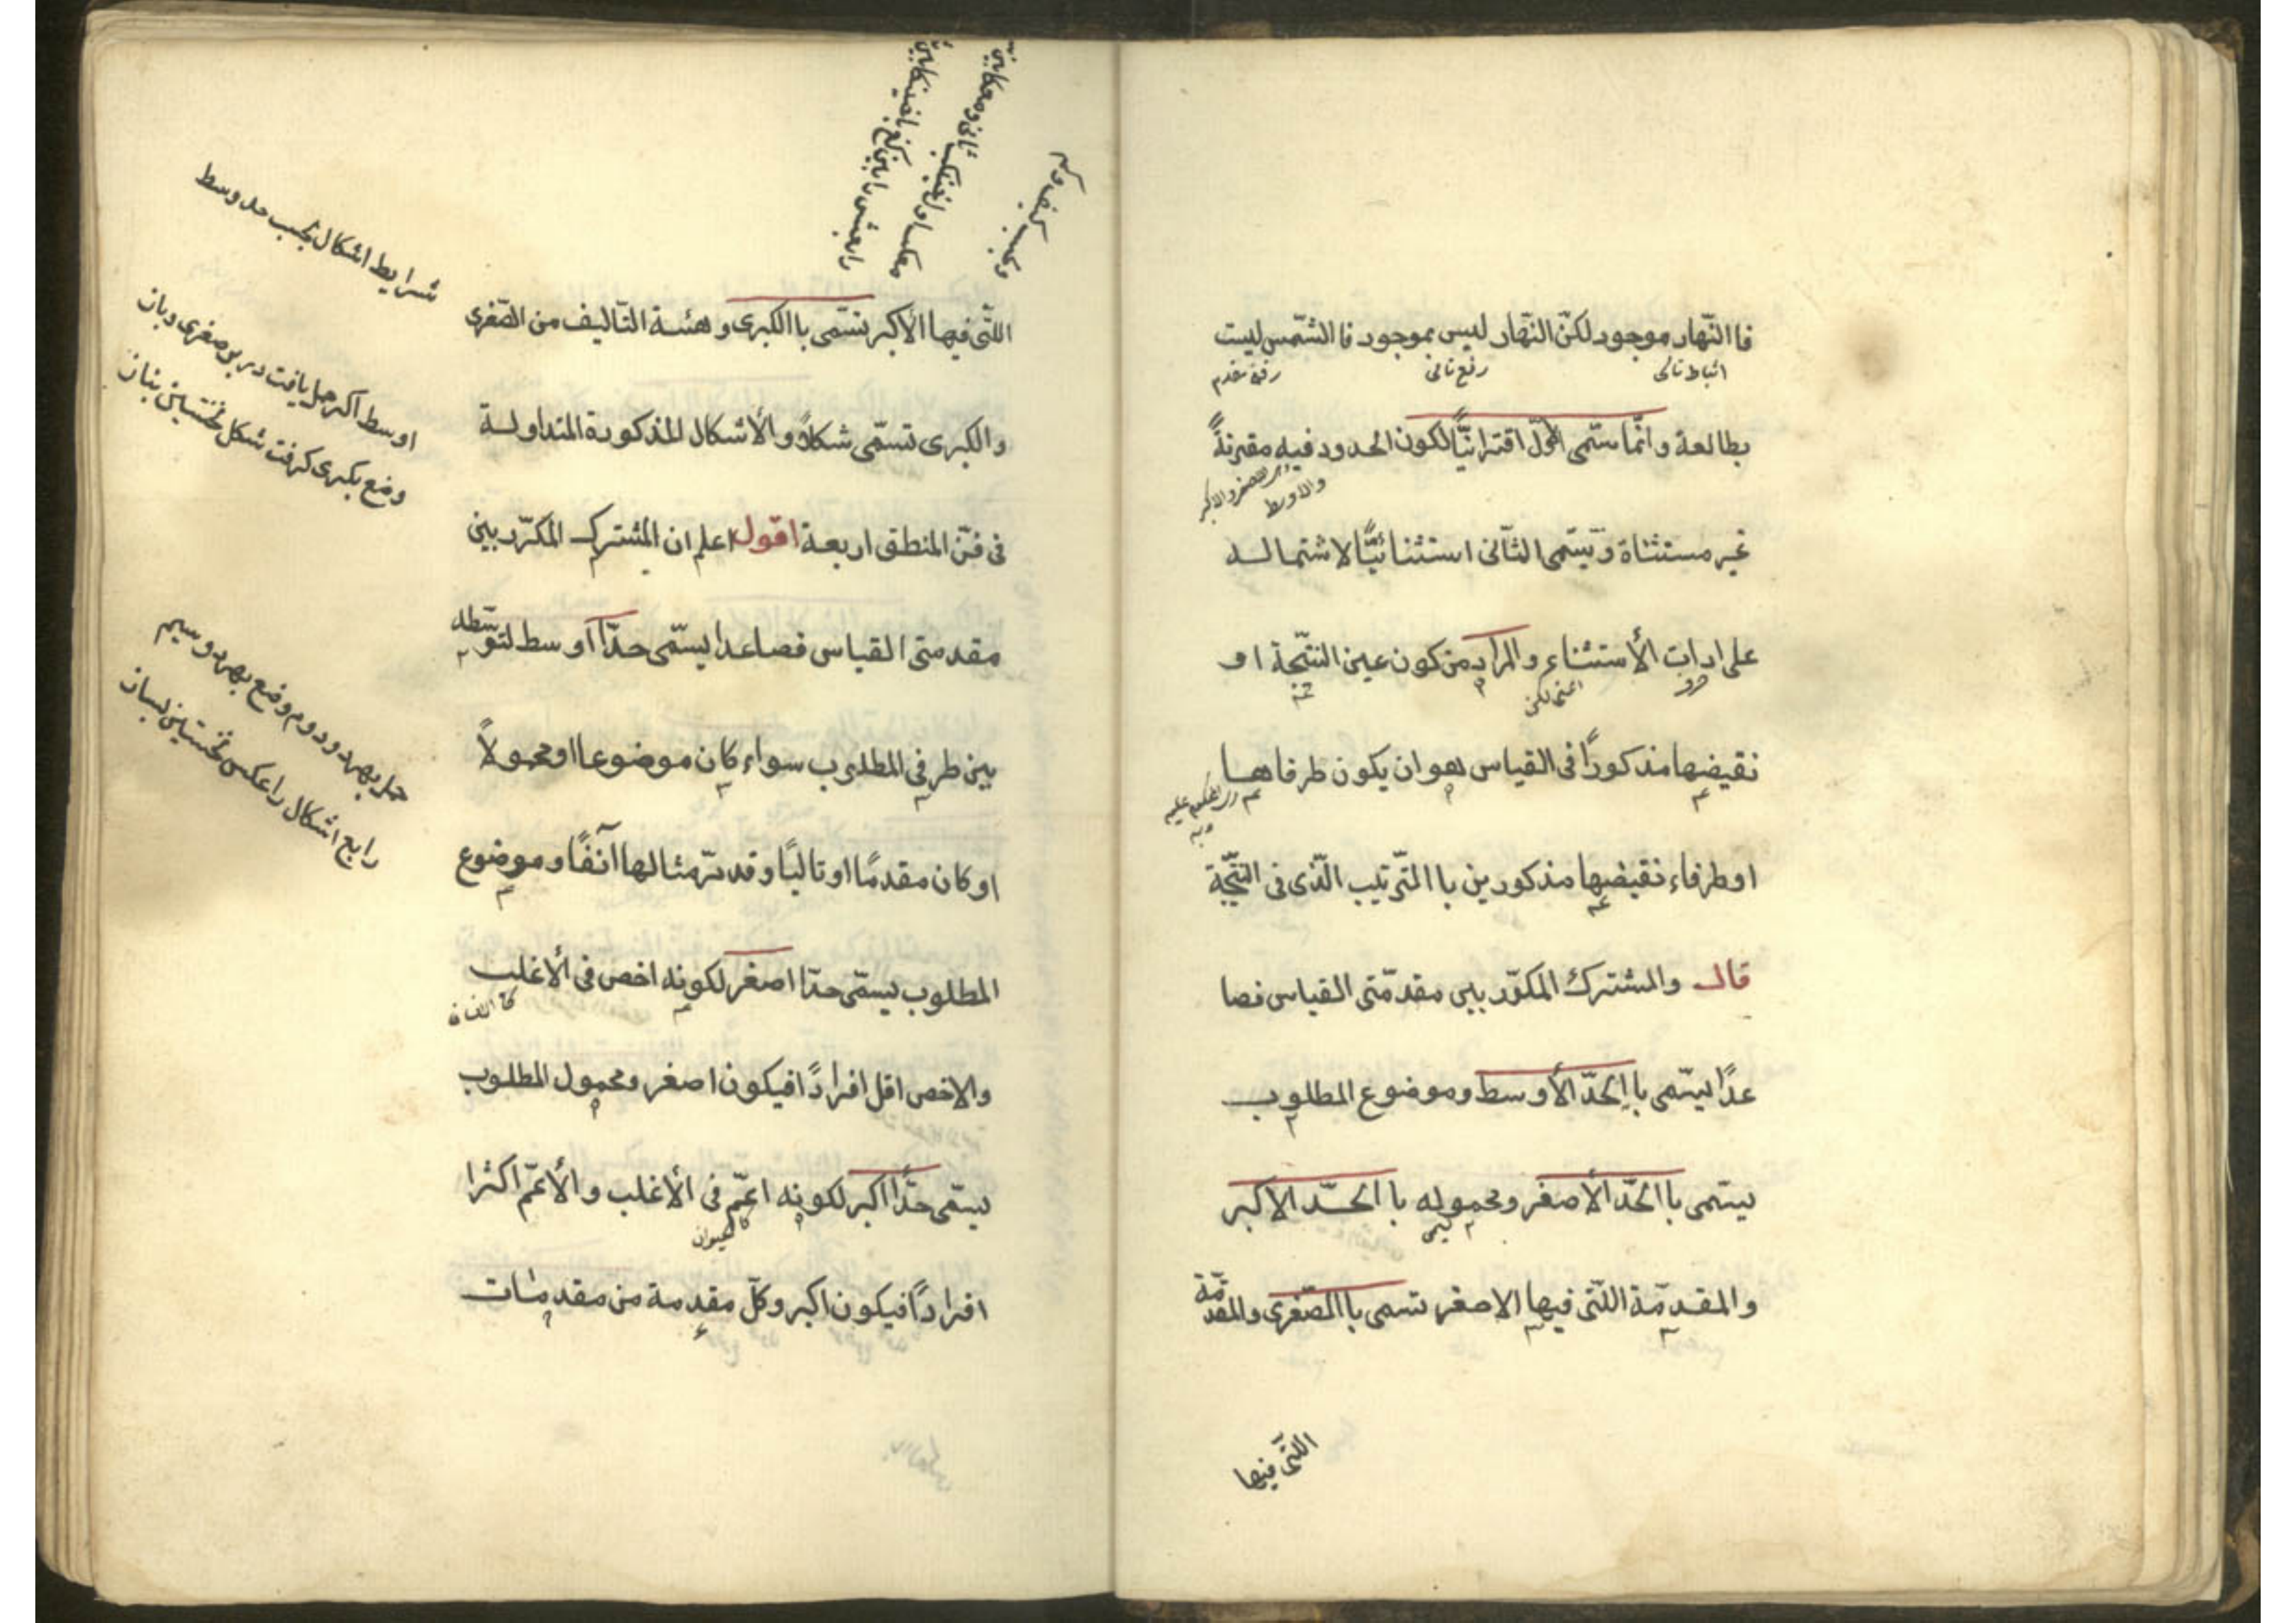 فا النّهار موجود لكنّ النّهار ليس بموجود فا الشّمس ليست
رفع مقدم
بطالعة وانّما سمّى الاوّل اقترانيًّا لكون الحدود فيه مقترنةً
والاوسط
غير مستثناة ويسمّى الثّانى استثنائيًّا لاشتماله
على ادات الأستثناء والمراد من كون عين النتيّجة او
اعنى لكن
نقيضها مذكورًا فى القياس هو ان يكون طرفاها
اوطرفاء نقيضها مذكورين با التّرتيب الّذى فى النتّيجة
قال والمشترك المكرّر بين مقدمّتى القياس فصا
عدًا يسّمى با الحدّ الأوسط وموضوع المطلوب
يسّمى با الحدّ الأصغر ومحموله با الحّد الاكبر
والمقدمّة اللّتى فيها الاصغر تسمى با الصّغرى والمقدمّة
اللتّى فيها
اللتّى فيها الأكبر تسّمى با الكبرى وهئية التّاليف من الصّغرى
والكبرى تسمّى شكلاً والأشكال المذكورة المتداولة
فى فنّ المنطق اربعة اقول اعلم ان المشترك المكرّر بين
مقدمتى القياس فصاعدا يسمّى حدّا اوسط لتوسّطه
بين طرفى المطلوب سواء كان موضوعا او محمولاً
او كان مقدمًا او تاليًا وقد مرّ مثالها آنفًا وموضوع
المطلوب يسمّى حدّا اصغر لكونه اخص فى ألاغلب
والاخص اقل افرادًا فيكون اصغر ومحمول المطلوب
يسمّى حدًّا اكبر لكونه اعمّ فى ألأغلب وألأعمّ اكثرا
كالحيوان
افرادًا فيكون اكبر وكلّ مقدمة من مقدمات
شرايط اشكال بحسب حد وسط
اوسط اكر حمل يافت در بر صغرى وباز
وضع بكبرى كرفت شكل نخستين بناز
حمل بهر دو دوم وضع بهر دو سيم
رابع اشكال را عكس نخستين بساز